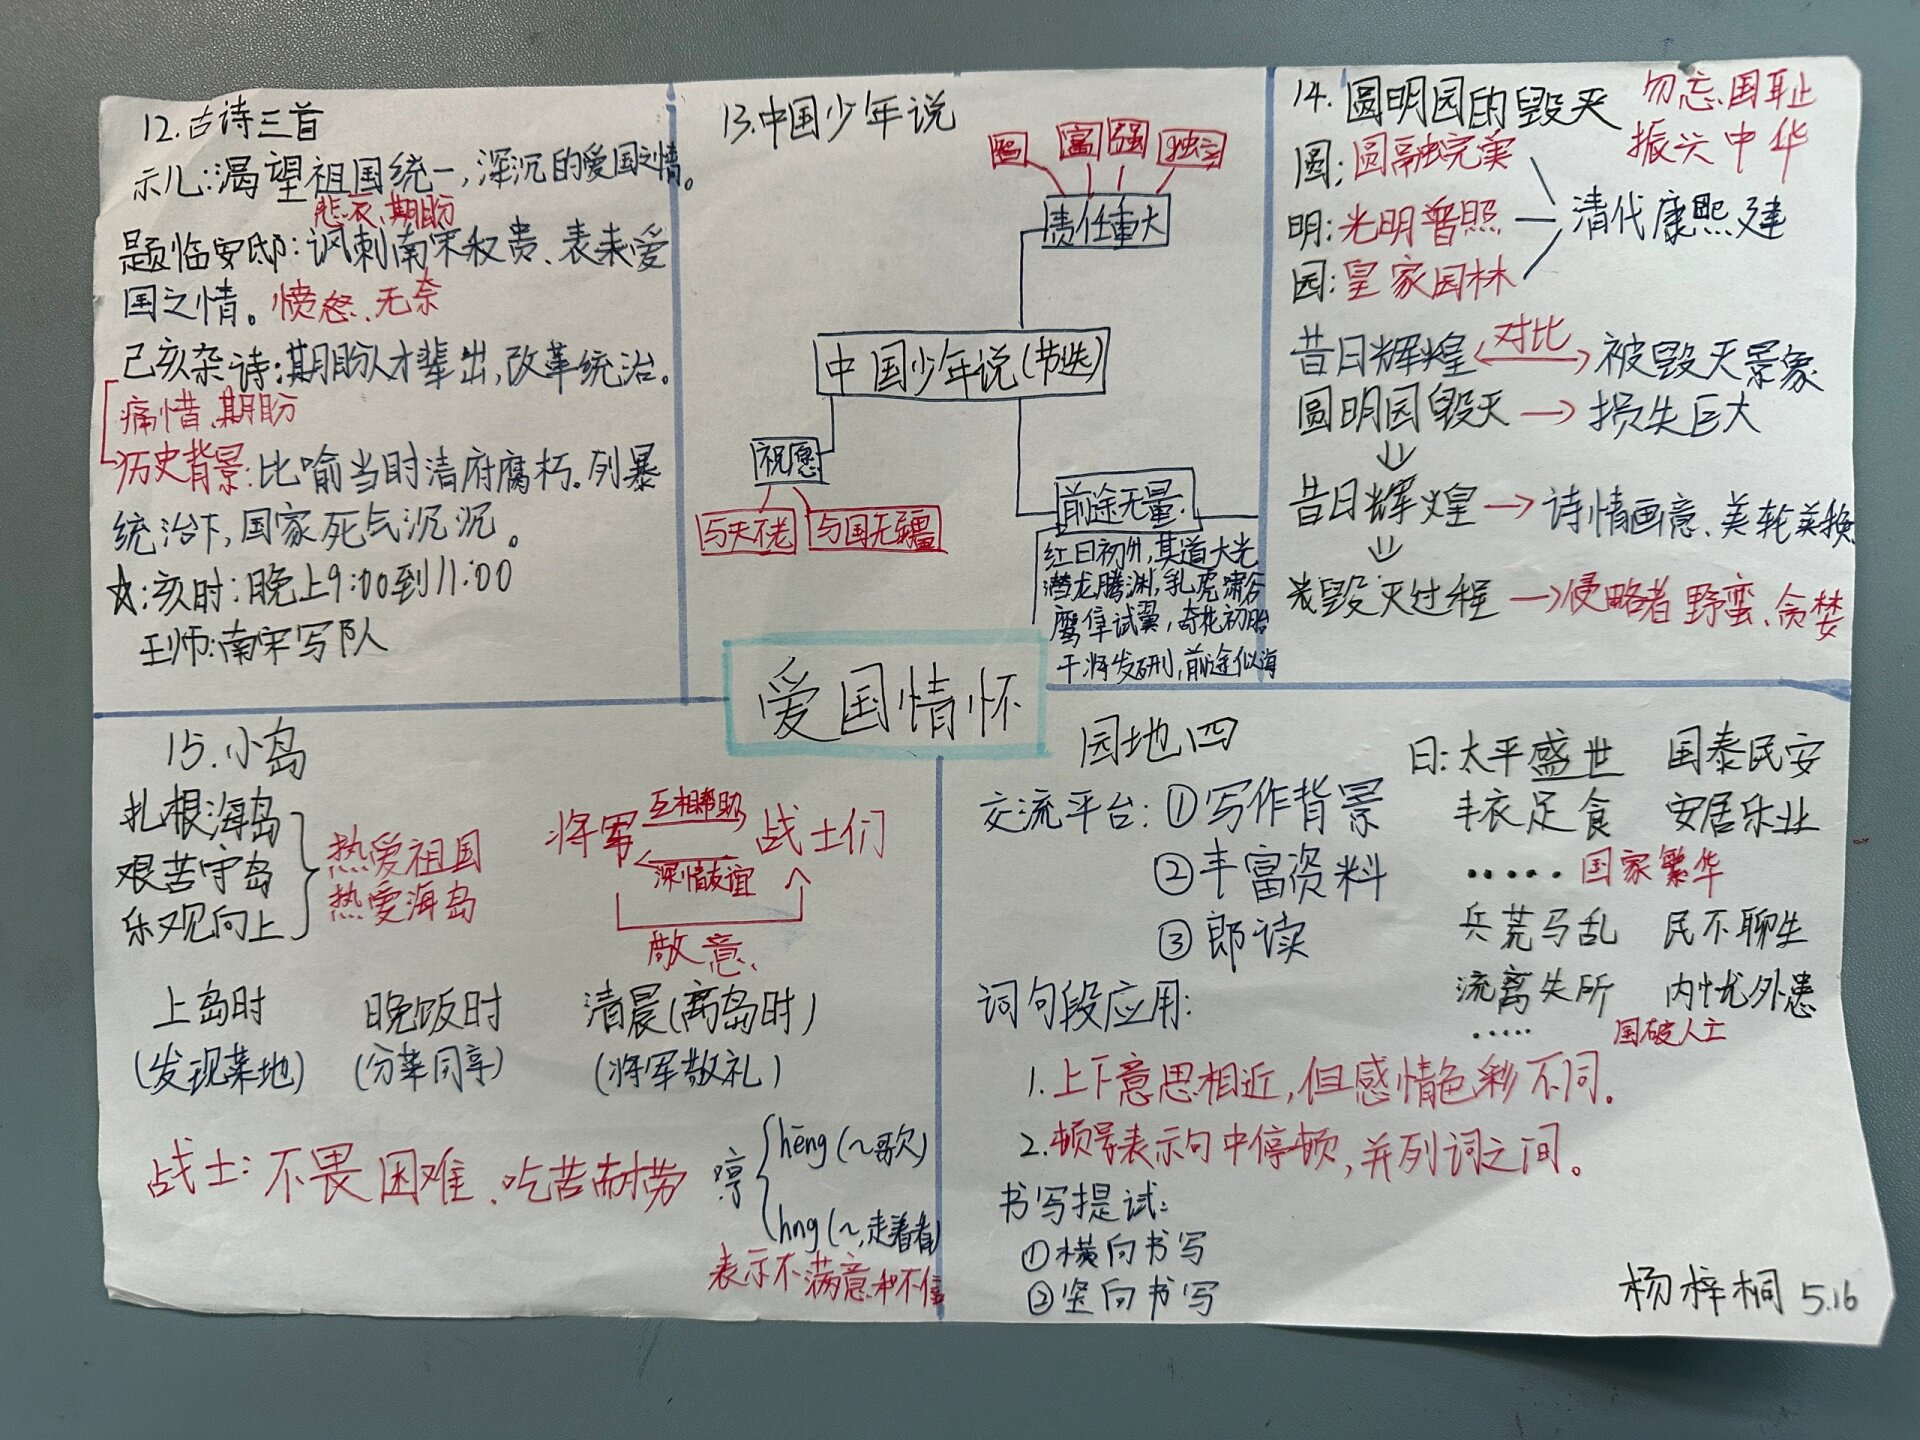 12.古诗三首
示儿:渴望祖国统一,深沉的爱国之情。
悲哀、期盼
题临安邸:讽刺南宋权贵、表来爱
国之情。愤怒、无奈
己亥杂诗:期盼人才辈出,改革统治。
痛惜、期盼
历史背景:比喻当时清府腐朽。列暴
统治下,国家死气沉沉。
☆:亥时:晚上9:00到11:00
王师:南宋写队
13.中国少年说
富 强 独立
责任重大
中国少年说(节选)
祝愿
与天不老 与国无疆
前途无量
红日初升,其道大光
潜龙腾渊,乳虎啸谷
鹰隼试翼,奇花初胎
干将发硎,前途似海
14.圆明园的毁灭
勿忘国耻
振兴中华
圆:圆融完美
明:光明普照
园:皇家园林
清代康熙建
昔日辉煌 对比 被毁灭景象
圆明园毁灭→损失巨大
昔日辉煌→诗情画意、美轮美换
毁灭过程→侵略者 野蛮、贪婪
爱国情怀
15.小岛
扎根海岛
艰苦守岛
乐观向上
热爱祖国
热爱海岛
将军 互相帮助 战士们
深情友谊
敬意
上岛时 晚饭时 清晨(离岛时)
(发现菜地) (分菜同享) (将军敬礼)
战士:不畏困难、吃苦耐劳
哼 hēng(~歌)
hng(~,走着看)
表示不满意和不信
园地四
交流平台:①写作背景
②丰富资料
③郎读
日:太平盛世 国泰民安
丰衣足食 安居乐业
····· 国家繁华
兵荒马乱 民不聊生
流离失所 内忧外患
····· 国破人亡
词句段应用:
1.上下意思相近,但感情色彩不同。
2.顿号表示句中停顿,并列词之间。
书写提试:
①横向书写
②竖向书写
杨梓桐 5.16